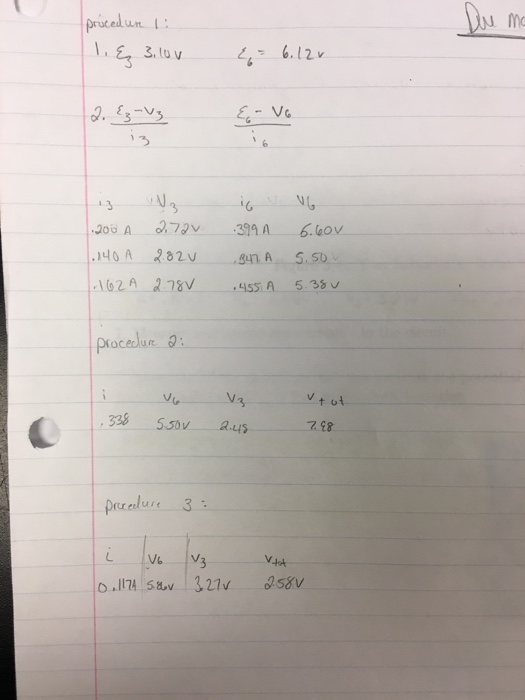 Due
procedure 1:
1. ℰ3 3.10v ℰ6 = 6.12v
2. ℰ3-V3 / i3 ℰ6 - V6 / i6
i3 V3 i6 V6
.200 A 2.72v .399 A 6.60V
.140 A 2.82V A 5.50
.162A 2.78V .455 A 5.38V
procedure 2:
i V6 V3 Vtot
.338 5.50V 2.48 7.98
procedure 3:
i V6 V3 Vtot
0.117A 3.27V 2.58V